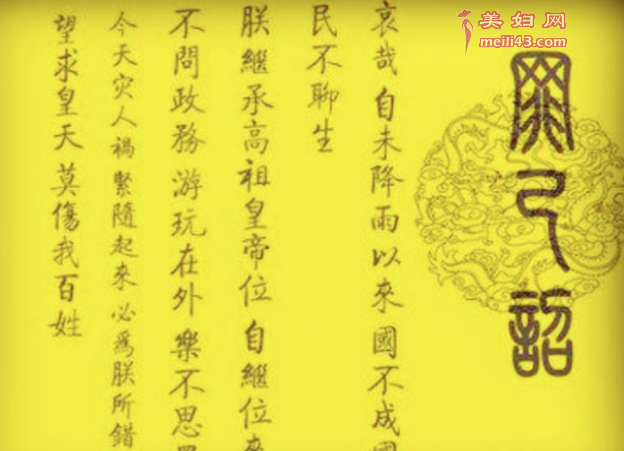 美妇网
meili43.com
罪己詔
哀哉自未降雨以來國不成國
民不聊生
朕繼承高祖皇帝位自繼位來
不問政務游玩在外樂不思
今天灾人禍緊隨起來必為朕所錯
望求皇天莫傷我百姓